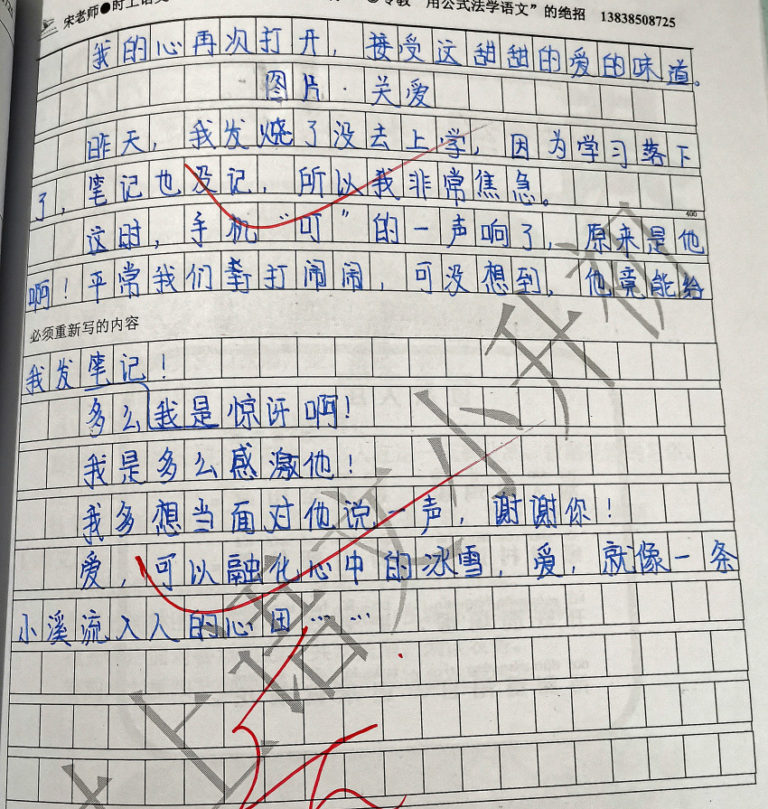 宋老师●时上语文
专教“用公式法学语文”的绝招 13838508725
我的心再次打开，接受这甜甜的爱的味道。
图片·关爱
昨天，我发烧了没去上学，因为学习落下
了，笔记也没记，所以我非常焦急。
400
这时，手机“叮”的一声响了，原来是他
啊！平常我们打闹闹，可没想到，他竟能给
必须重新写的内容
我发笔记！
多么我是惊讶啊！
我是多么感激他！
我多想当面对他说一声，谢谢你！
爱，可以融化心中的冰雪，爱，就像一条
小溪流入人的心田……
上语文小升初